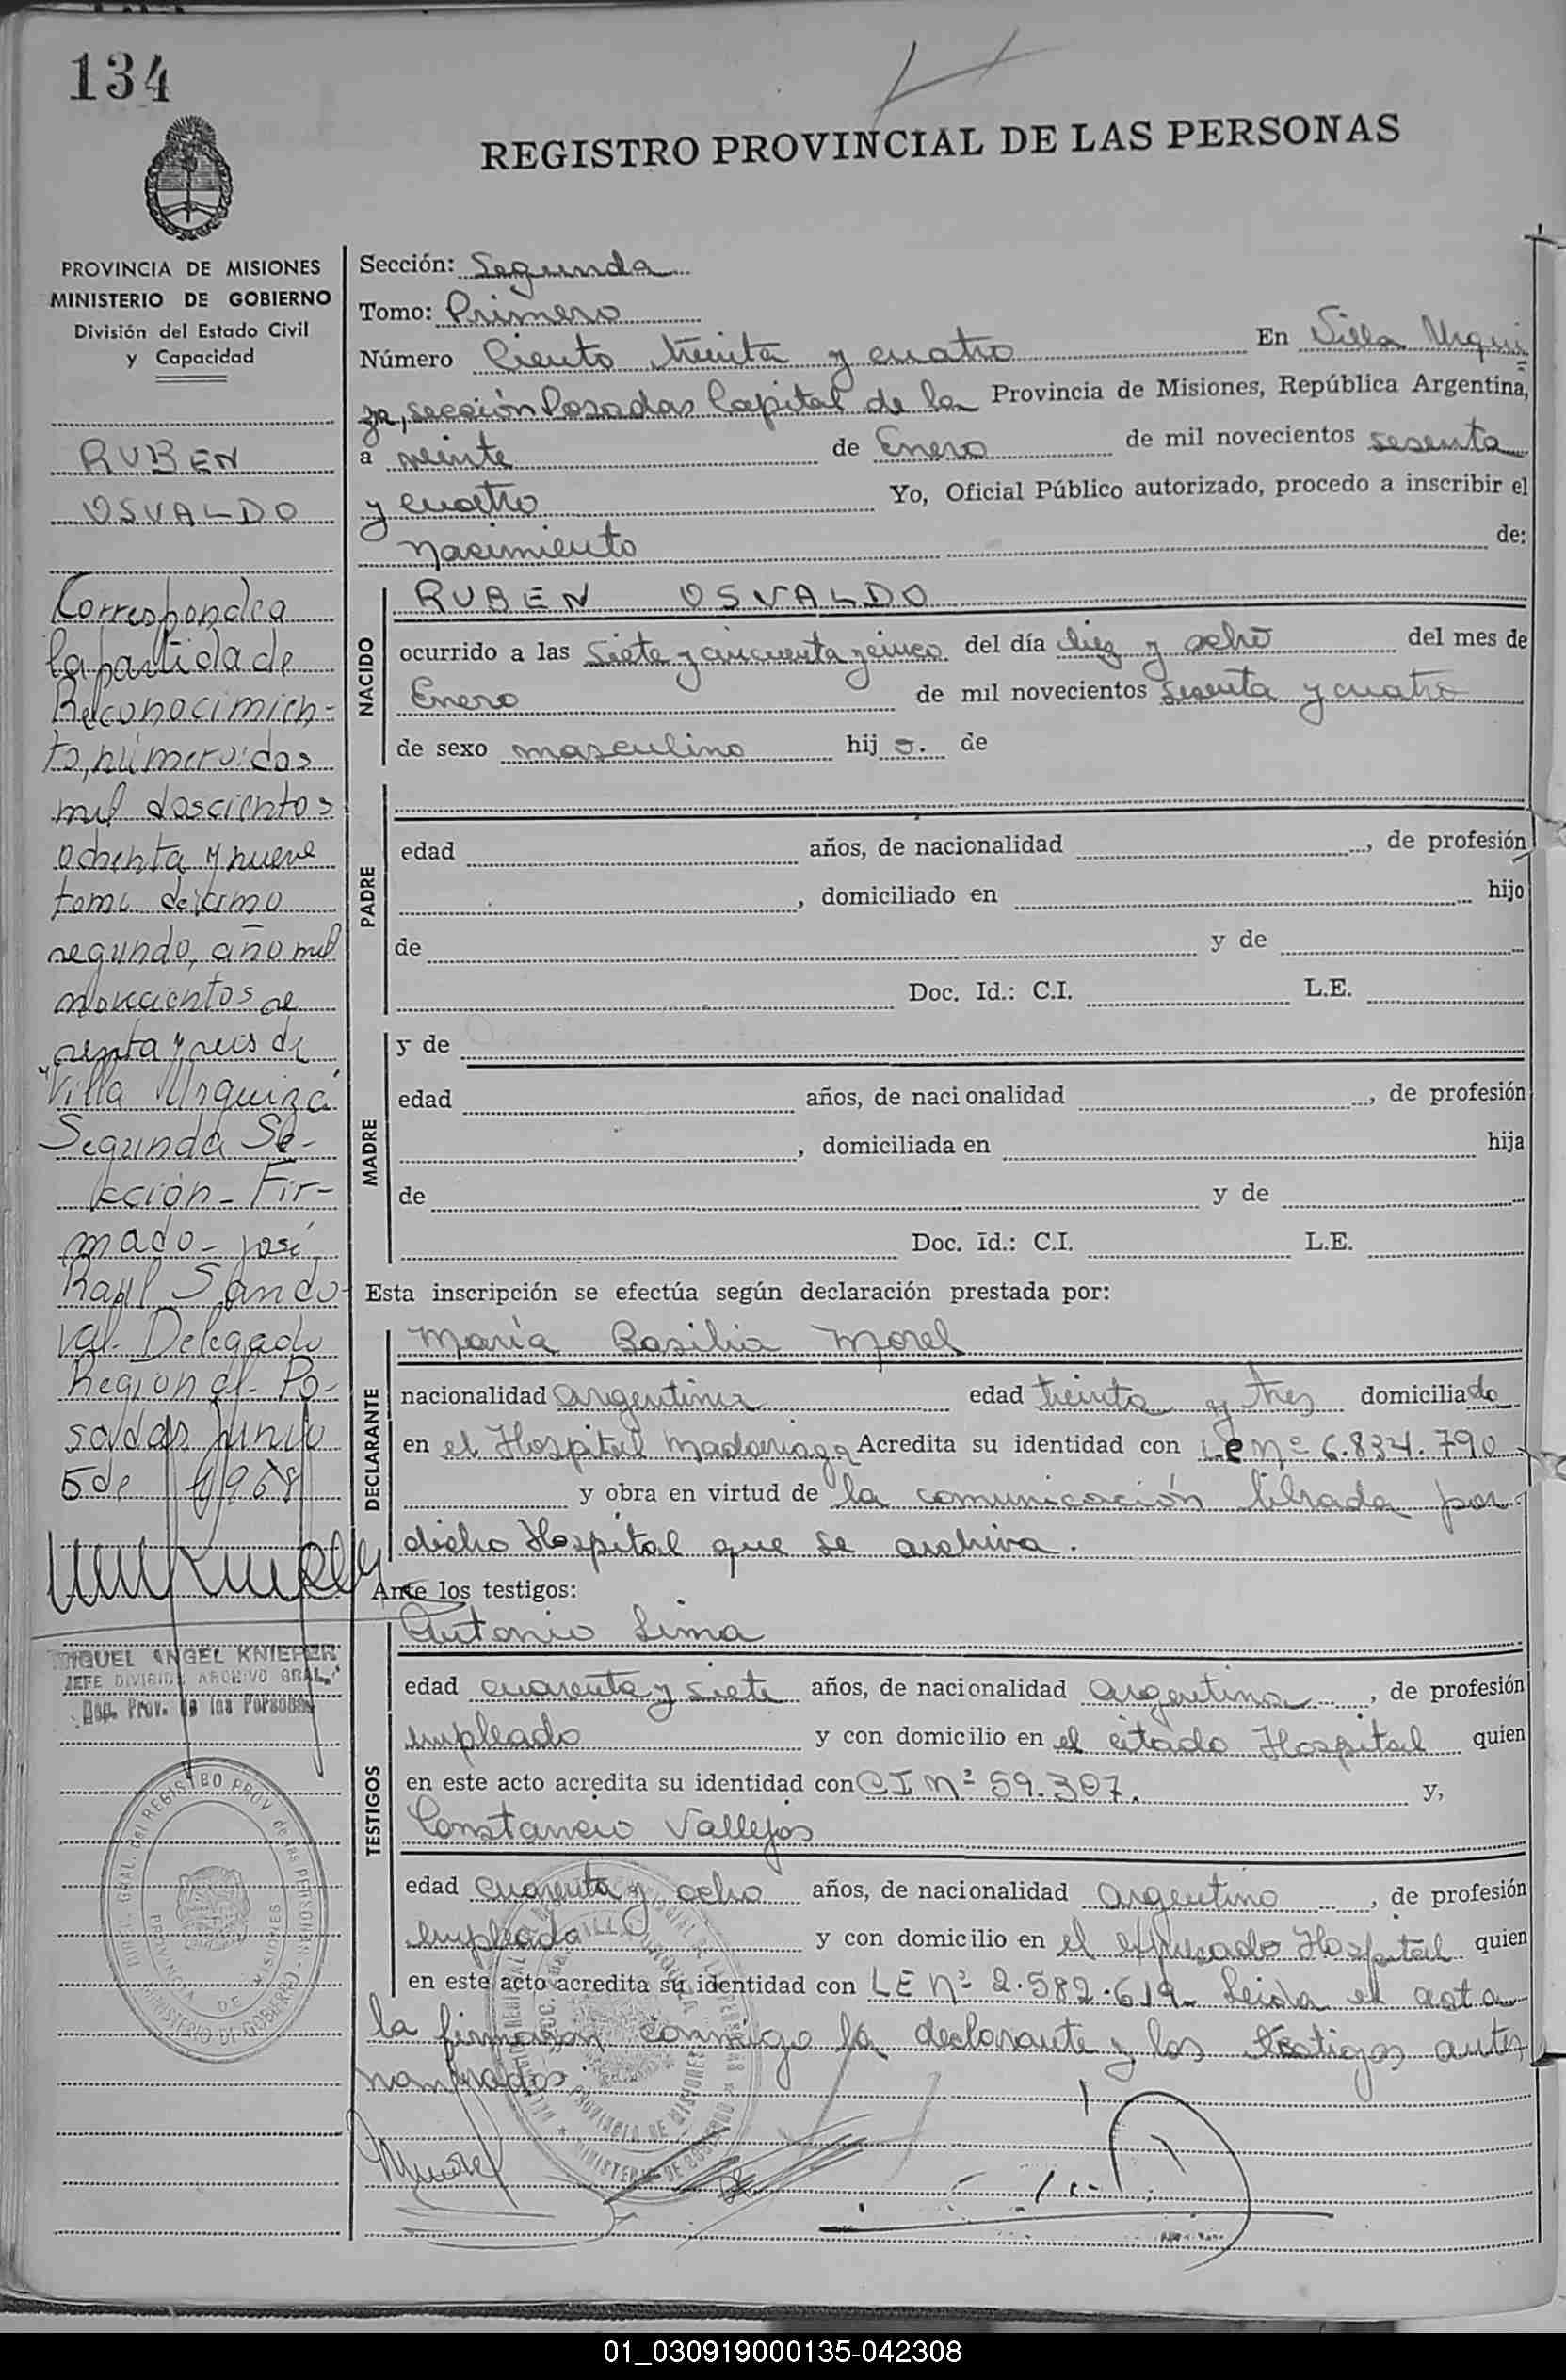 134
REGISTRO PROVINCIAL DE LAS PERSONAS
PROVINCIA DE MISIONES
MINISTERIO DE GOBIERNO
División del Estado Civil
y Capacidad
RUBEN
OSVALDO
Corresponde a
la partida de
Reconocimien-
to, número: dos
mil doscientos
ochenta y nueve
tomo décimo
segundo, año mil
novecientos se
senta y seis de
"Villa Urquiza"
Segunda Se-
cción - Fir-
mado - José
Raul Sando-
val - Delegado
Regional - Po-
sadas Junio
5 de 1968
MIGUEL ANGEL KNIEPER
JEFE DIVISION ARCHIVO GRAL.
Rep. Prov. de las Personas
Sección: Segunda
Tomo: Primero
Número Ciento treinta y cuatro En Villa Urqui
za, sección Posadas Capital de la Provincia de Misiones, República Argentina,
a veinte de Enero de mil novecientos sesenta
y cuatro Yo, Oficial Público autorizado, procedo a inscribir el
Nacimiento de:
NACIDO
RUBEN OSVALDO
ocurrido a las siete y cincuenta y cinco del día diez y ocho del mes de
Enero de mil novecientos sesenta y cuatro
de sexo masculino hijo. de
PADRE
edad años, de nacionalidad , de profesión
, domiciliado en hijo
de y de
Doc. Id.: C.I. L.E.
MADRE
y de
edad años, de nacionalidad , de profesión
, domiciliada en hija
de y de
Doc. Id.: C.I. L.E.
Esta inscripción se efectúa según declaración prestada por:
DECLARANTE
María Basilia Morel
nacionalidad argentina edad treinta y tres domiciliada
en el Hospital Madariaga Acredita su identidad con Le Nº 6.834.790
y obra en virtud de la comunicación librada por
dicho Hospital que se archiva.
Ante los testigos:
TESTIGOS
Antonio Lima
edad cuarenta y siete años, de nacionalidad Argentina, de profesión
empleado y con domicilio en el citado Hospital quien
en este acto acredita su identidad con CI Nº 59.307. y,
Constancio Vallejos
edad cuarenta y ocho años, de nacionalidad argentino, de profesión
empleado y con domicilio en el expresado Hospital quien
en este acto acredita su identidad con LE Nº 2.582.619. Leida el acta
la firmaron conmigo la declarante y los testigos antes
nombrados.
01_030919000135-042308